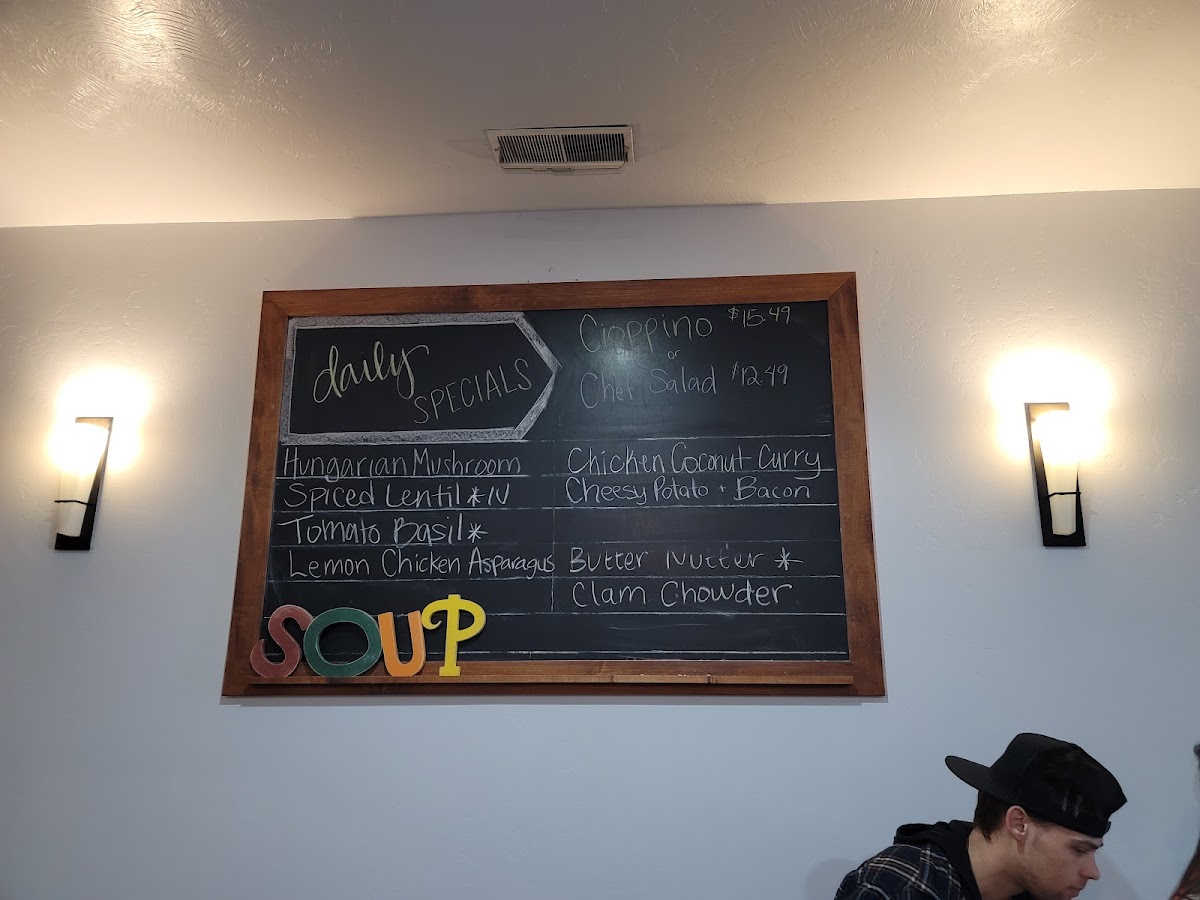 daily
SPECIALS
Cioppino $15.49
or
Chef Salad $12.49
Hungarian Mushroom
Spiced Lentil *IV
Tomato Basil *
Lemon Chicken Asparagus
Chicken Coconut Curry
Cheesy Potato + Bacon
Butter Nutter *
Clam Chowder
SOUP